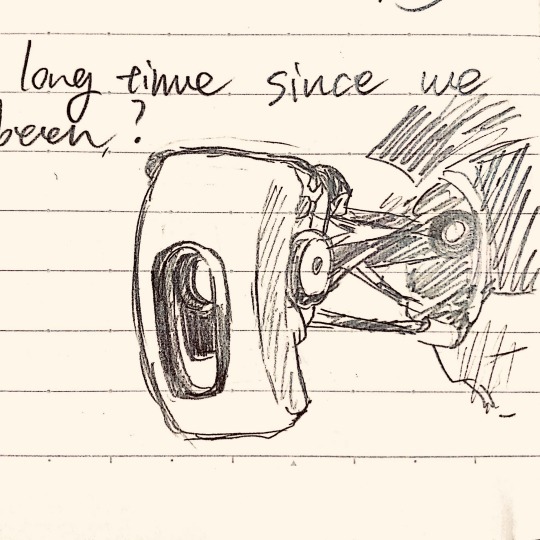 long time since we
been?